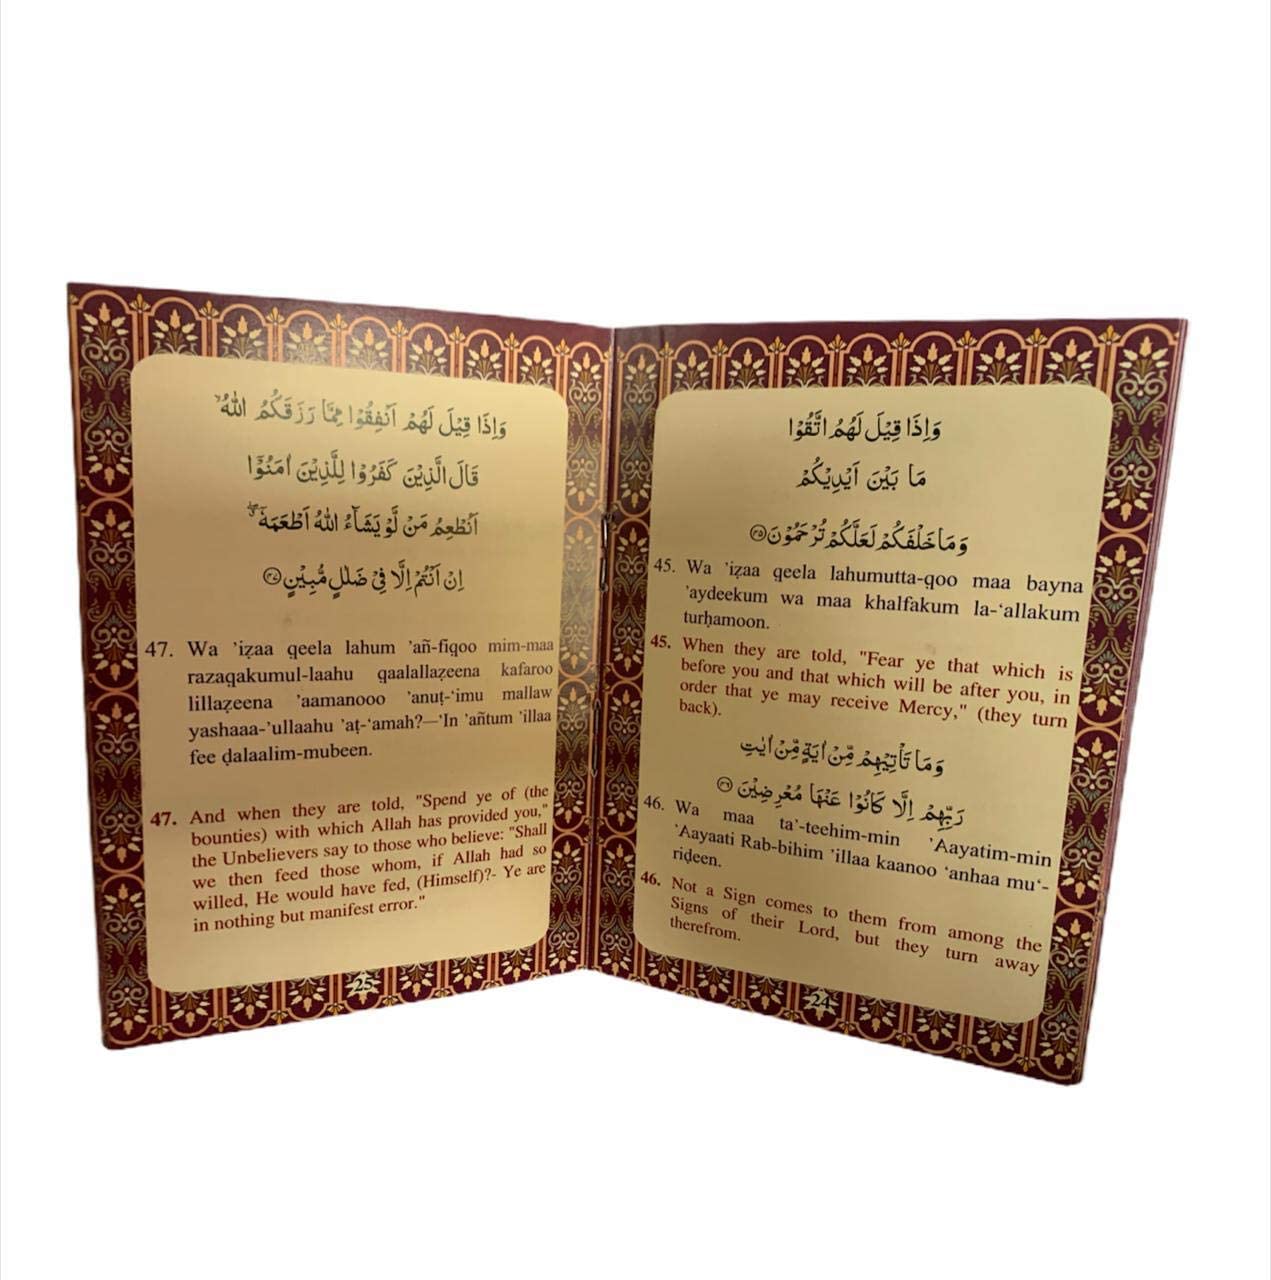 وَاِذَا قِيْلَ لَهُمُ اتَّقُوْا
مَا بَيْنَ اَيْدِيْكُمْ
وَمَا خَلْفَكُمْ لَعَلَّكُمْ تُرْحَمُوْنَ ﴿۴۵﴾
45. Wa ’iẓaa qeela lahumutta-qoo maa bayna
’aydeekum wa maa khalfakum la-‘allakum
turḥamoon.
45. When they are told, "Fear ye that which is
before you and that which will be after you, in
order that ye may receive Mercy," (they turn
back).
وَمَا تَاْتِيْهِمْ مِّنْ اٰيَةٍ مِّنْ اٰيٰتِ
رَبِّهِمْ اِلَّا كَانُوْا عَنْهَا مُعْرِضِيْنَ ﴿۴۶﴾
46. Wa maa ta’-teehim-min ’Aayatim-min
’Aayaati Rab-bihim ’illaa kaanoo ‘anhaa mu‘-
riḍeen.
46. Not a Sign comes to them from among the
Signs of their Lord, but they turn away
therefrom.
24
وَاِذَا قِيْلَ لَهُمْ اَنْفِقُوْا مِمَّا رَزَقَكُمُ اللّٰهُ ۙ
قَالَ الَّذِيْنَ كَفَرُوْا لِلَّذِيْنَ اٰمَنُوْٓا
اَنُطْعِمُ مَنْ لَّوْ يَشَآءُ اللّٰهُ اَطْعَمَهٗۤ ۖ
اِنْ اَنْتُمْ اِلَّا فِيْ ضَلٰلٍ مُّبِيْنٍ ﴿۴۷﴾
47. Wa ’iẓaa qeela lahum ’añ-fiqoo mim-maa
razaqakumul-laahu qaalallaẓeena kafaroo
lillaẓeena ’aamanooo ’anuṭ-‘imu mallaw
yashaaa-’ullaahu ’aṭ-‘amah?—’In ’añtum ’illaa
fee ḍalaalim-mubeen.
47. And when they are told, "Spend ye of (the
bounties) with which Allah has provided you,"
the Unbelievers say to those who believe: "Shall
we then feed those whom, if Allah had so
willed, He would have fed, (Himself)?- Ye are
in nothing but manifest error."
25